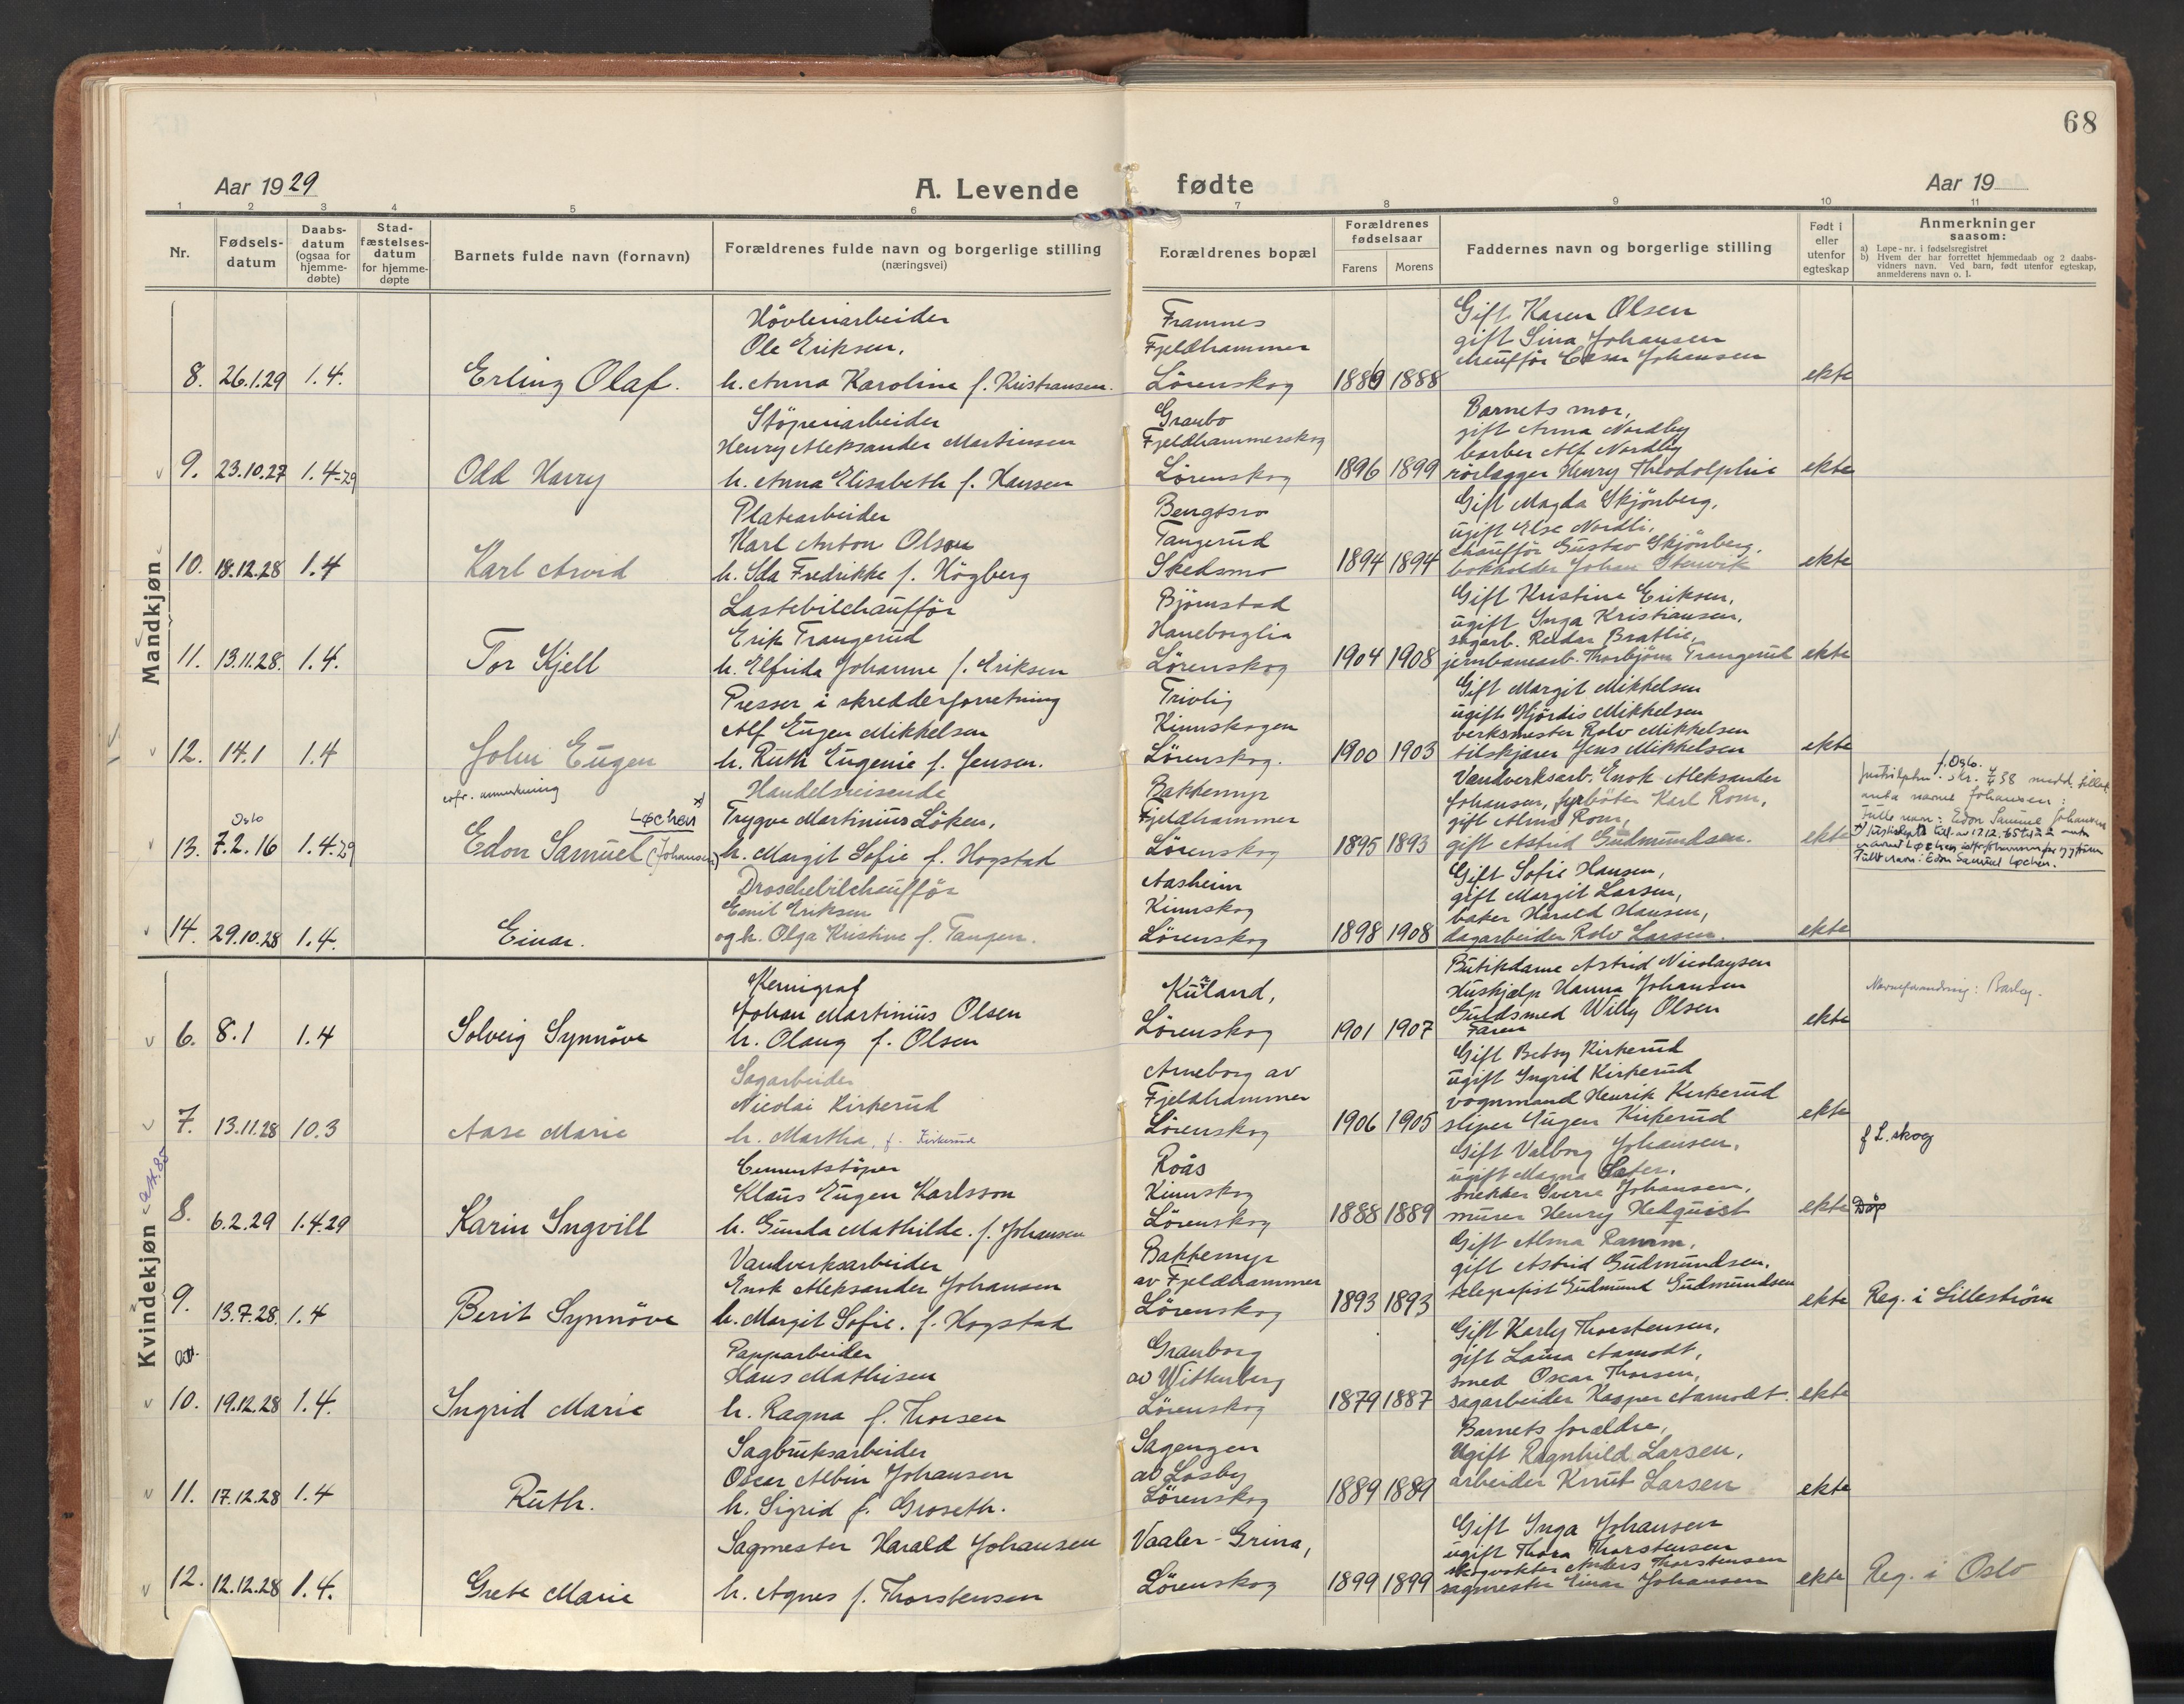 68
Aar 1929
A. Levende fødte
Aar 19
1 2 3 4 5 6 7 8 9 10 11
Nr.
Fødsels-
datum
Daabs-
datum
(ogsaa for
hjemme-
døbte)
Stad-
fæstelses-
datum
for hjemme-
døpte
Barnets fulde navn (fornavn)
Forældrenes fulde navn og borgerlige stilling
(næringsvei)
Forældrenes bopæl
Forældrenes
fødselsaar
Farens Morens
Faddernes navn og borgerlige stilling
Født i
eller
utenfor
egteskap
Anmerkninger
saasom:
a) Løpe-nr. i fødselsregistret
b) Hvem der har forrettet hjemmedaab og 2 daabs-
vidners navn. Ved barn, født utenfor egteskap,
anmelderens navn o. l.
Mandkjøn
8. 26.1.29 1.4. Erling Olaf.
Høvleriarbeider
Ole Eriksen,
h. Anna Karoline f. Kristiansen.
Framnes
Fjeldhammer
Lørenskog
1886 1888
Gift Karen Olsen
gift Sina Johansen
chauffør Cæsar Johansen
ekte
9. 23.10.27 1.4-29 Odd Harry
Støperiarbeider
Henry Aleksander Martinsen
h. Anna Elisabeth f. Hansen
Granbo
Fjeldhammerskog
Lørenskog
1896 1899
Barnets mor,
gift Anna Nordby
barber Alf Nordby
rørlægger Henry Theodolphie
ekte
10. 18.12.28 1.4 Karl Arvid
Platearbeider
Karl Anton Olsen
h. Ida Fredrikke f. Högberg
Bengtsro
Tangerud
Skedsmo
1894 1894
Gift Magda Skjønberg,
ugift Else Nordli,
chauffør Gustav Skjønberg,
bokholder Johan Stenvik
ekte
11. 13.11.28. 1.4. Tor Kjell
Lastebilchauffør
Erik Trangerud
h. Elfrida Johanne f. Eriksen
Bjørnstad
Haneborglia
Lørenskog
1904 1908
Gift Kristine Eriksen,
ugift Inga Kristiansen,
sagarb. Reidar Bratlie,
jernbanearb. Thorbjørn Trangerud
ekte
12. 14.1 1.4 John Eugen
Presser i skredderforretning
Alf Eugen Mikkelsen
h. Ruth Eugenie f. Jensen.
Trivlig
Kinnskogen
Lørenskog.
1900 1903
Gift Margit Mikkelsen
ugift Hjørdis Mikkelsen
verksmester Rolv Mikkelsen
tilskjærer Jens Mikkelsen
ekte
cfr. anmerkning
13. Oslo 7.2.16 1.4.29 Edon Samuel (Johansen) Løchen x)
Handelsreisende
Trygve Martinius Löken,
h. Margit Sofie f. Hogstad
Bakkemyr
Fjeldhammer
Lørenskog
1895 1893
Vandverksarb. Enok Aleksander
Johansen, fyrbøter Karl Rom,
gift Alma Rom,
gift Astrid Gudmundsen.
ekte
f. Oslo.
anta navnet Johansen:
Fulle navn: Edon Samuel Johansen
Fullt navn: Edon Samuel Løchen.
14. 29.10.28 1.4. Einar.
Droschebilchauffør
Emil Eriksen
og h. Olga Kristine f. Tangen.
Aasheim
Kinnskog
Lørenskog
1898 1908
Gift Sofie Hansen,
gift Margit Larsen,
baker Harald Hansen,
dagarbeider Rolv Larsen.
ekte
Kvindekjøn
6. 8.1 1.4 Solveig Synnøve
Kemigraf
Johan Martinius Olsen
h. Olaug f. Olsen
Kurland,
Lørenskog
1901 1907
Butikdame Astrid Nicolaysen
Hushjælp Hanna Johansen
Guldsmed Willy Olsen
Faren
ekte
Navneforandring: Barlag.
7. 13.11.28 10.3 Aase Marie
Sagarbeider
Nicolai Kirkerud
h. Martha, f. Kirkerud
Arneborg av
Fjeldhammer
Lørenskog
1906 1905
Gift Betsy Kirkerud
ugift Ingrid Kirkerud
vognmand Henrik Kirkerud
sliper Eugen Kirkerud
ekte
f L.skog
att. 85
8. 6.2.29 1.4.29 Karin Ingvill
Cementstøper
Klaus Eugen Karlsson
h. Gunda Mathilde. f. Johansen
Roås
Kinnskog
Lørenskog
1888 1889
Gift Valborg Johansen,
ugift Magna Sæter,
snekker Sverre Johansen,
murer Henry Hedquist
ekte
9. 13.7.28. 1.4 Berit Synnøve
Vandverksarbeider
Enok Aleksander Johansen
h. Margit Sofie. f. Hogstad
Bakkemyr
av Fjeldhammer
Lørenskog
1893 1893
Gift Alma Ramm,
gift Astrid Gudmundsen,
telegrafist Gudmund Gudmundsen
ekte
Reg. i Lillestrøm
att.
10. 19.12.28 1.4. Ingrid Marie
Papparbeider
Hans Mathisen
h. Ragna f. Thorsen
Granborg
av Wittenberg
Lørenskog
1879 1887
Gift Karly Thorstensen,
gift Laura Aamodt,
smed Oscar Thorsen,
sagarbeider Kasper Aamodt.
ekte
11. 17.12.28 1.4 Ruth.
Sagbruksarbeider
Oscar Albin Johansen
h. Sigrid f. Groseth.
Sagengen
av Losby
Lørenskog
1889 1889
Barnets forældre,
Ugift Ragnhild Larsen,
arbeider Knut Larsen
ekte
12. 12.12.28 1.4. Grete Marie
Sagmester Harald Johansen
h. Agnes f. Thorstensen
Vaaler-Grina,
Lørenskog
1899 1899
Gift Inga Johansen
ugift Thora Thorstensen
skogvokter Anders Thorstensen
sagmester Einar Johansen
ekte
Reg. i Oslo